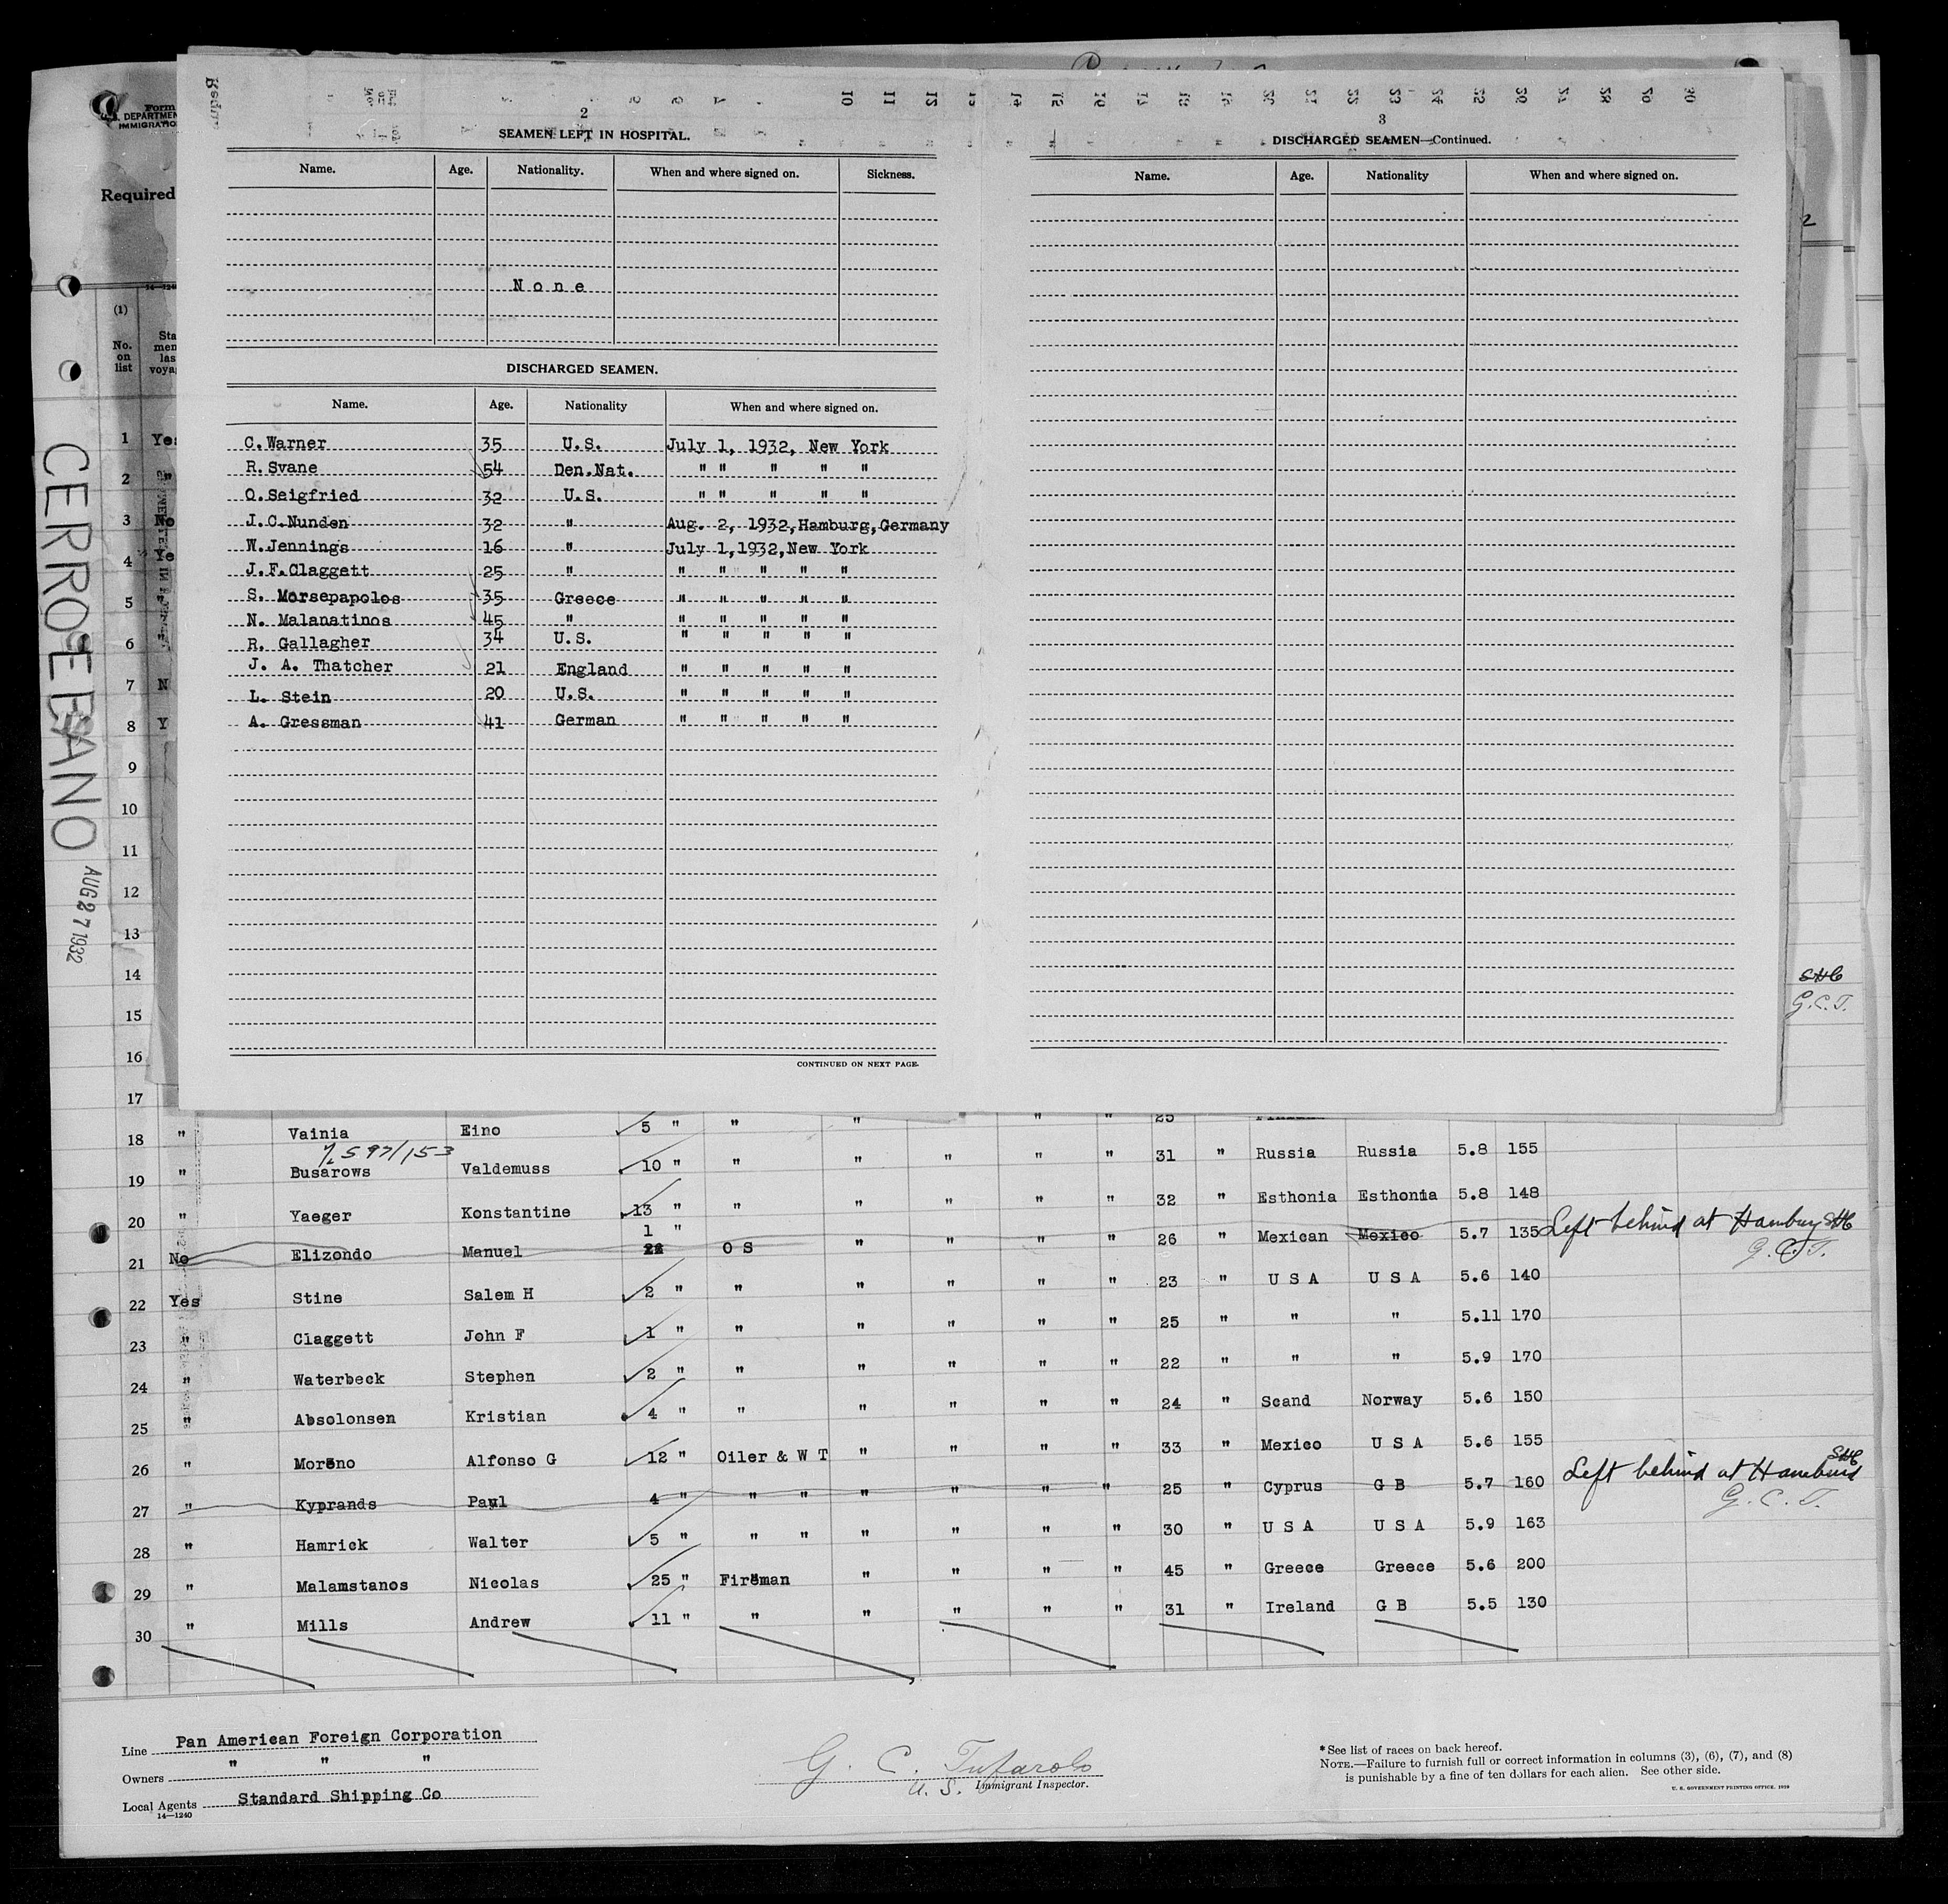 Form
DEPARTMEN
IMMIGRATIO
Required
(1)
No. on list
CERRO EBANO
AUG 27 1932
2
SEAMEN LEFT IN HOSPITAL.
Name. Age. Nationality. When and where signed on. Sickness.
None
DISCHARGED SEAMEN.
Name. Age. Nationality When and where signed on.
C. Warner 35 U.S. July 1, 1932, New York
R. Svane 54 Den.Nat. " " " " "
O. Seigfried 32 U.S. " " " " "
J.C.Nunden 32 " Aug. 2, 1932, Hamburg, Germany
W.Jennings 16 " July 1,1932,New York
J.F.Claggett 25 " " " " " "
S. Morsepapolos 35 Greece " " " " "
N. Malanatinos 45 " " " " " "
R. Gallagher 34 U.S. " " " " "
J. A. Thatcher 21 England " " " " "
L. Stein 20 U.S. " " " " "
A. Gressman 41 German " " " " "
CONTINUED ON NEXT PAGE.
3
DISCHARGED SEAMEN—Continued.
Name. Age. Nationality When and where signed on.
1 Yes
2 "
3 No
4 Ye
5
6
7 N
8 Y
9
10
11
12
13
14
15
16
17
SHC
G.C.T.
18 " Vainia Eino 5 " " " " " 25
19 " Busarows Valdemuss 10 " " " " " " 31 " Russia Russia 5.8 155
20 " Yaeger Konstantine 13 " " " " " " 32 " Esthonia Esthonia 5.8 148
21 No Elizondo Manuel 1 " O S " " " " 26 " Mexican Mexico 5.7 135 Left behind at Hamburg SHC
G.C.T.
22 Yes Stine Salem H 2 " " " " " " 23 " U S A U S A 5.6 140
23 " Claggett John F 1 " " " " " " 25 " " " 5.11 170
24 " Waterbeck Stephen 2 " " " " " " 22 " " " 5.9 170
25 " Absolonsen Kristian 4 " " " " " " 24 " Scand Norway 5.6 150
26 " Moreno Alfonso G 12 " Oiler & W T " " " " 33 " Mexico U S A 5.6 155
27 " Kyprands Paul 4 " " " " " " " 25 " Cyprus G B 5.7 160 Left behind at Hamburg SHC
G.C.T.
28 " Hamrick Walter 5 " " " " " " " 30 " U S A U S A 5.9 163
29 " Malamstanos Nicolas 25 " Fireman " " " " 45 " Greece Greece 5.6 200
30 " Mills Andrew 11 " " " " " " 31 " Ireland G B 5.5 130
Line Pan American Foreign Corporation
Owners " " "
Local Agents Standard Shipping Co
14—1240
G. C. Tufarolo
U. S. Immigrant Inspector.
* See list of races on back hereof.
NOTE.—Failure to furnish full or correct information in columns (3), (6), (7), and (8)
is punishable by a fine of ten dollars for each alien. See other side.
U. S. GOVERNMENT PRINTING OFFICE. 1929